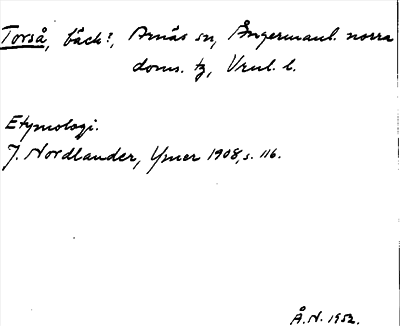 Torså, bäck?, Arnäs sn, Ångermanl. norra
doms. tg, Vrnl. l.
Etymologi.
J. Nordlander, Ymer 1908, s. 116.
Å.N. 1952.